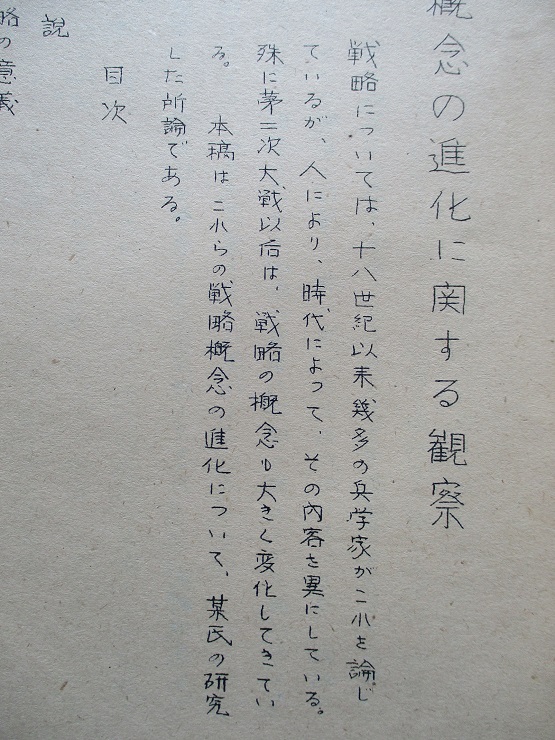 概念の進化に関する観察
戦略については、十八世紀以来幾多の兵学家がこれを論じ
ているが、人により、時代によって、その内容を異にしている。
殊に第二次大戦以后は、戦略の概念も大きく変化してきてい
る。　本稿はこれらの戦略概念の進化について、某氏の研究
した所論である。
目次
説
略の意義